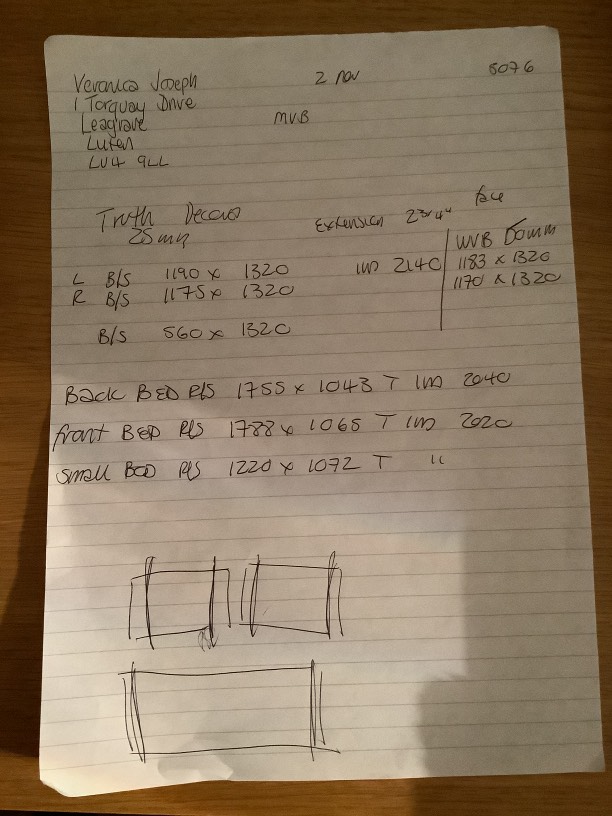 Veronica Joseph 2 nov 5076
1 Torquay Drive
Leagrave MVB
Luten
LU4 9LL
Truth Decors Extension 2 3/4" face
25mm
WVB 50mm
L B/S 1190 x 1320 2140 1183 x 1320
R B/S 1175 x 1320 1170 x 1320
B/S 560 x 1320
Back BED P/S 1755 x 1043 T 2040
front BED P/S 1788 x 1065 T 2020
small BED P/S 1220 x 1072 T "